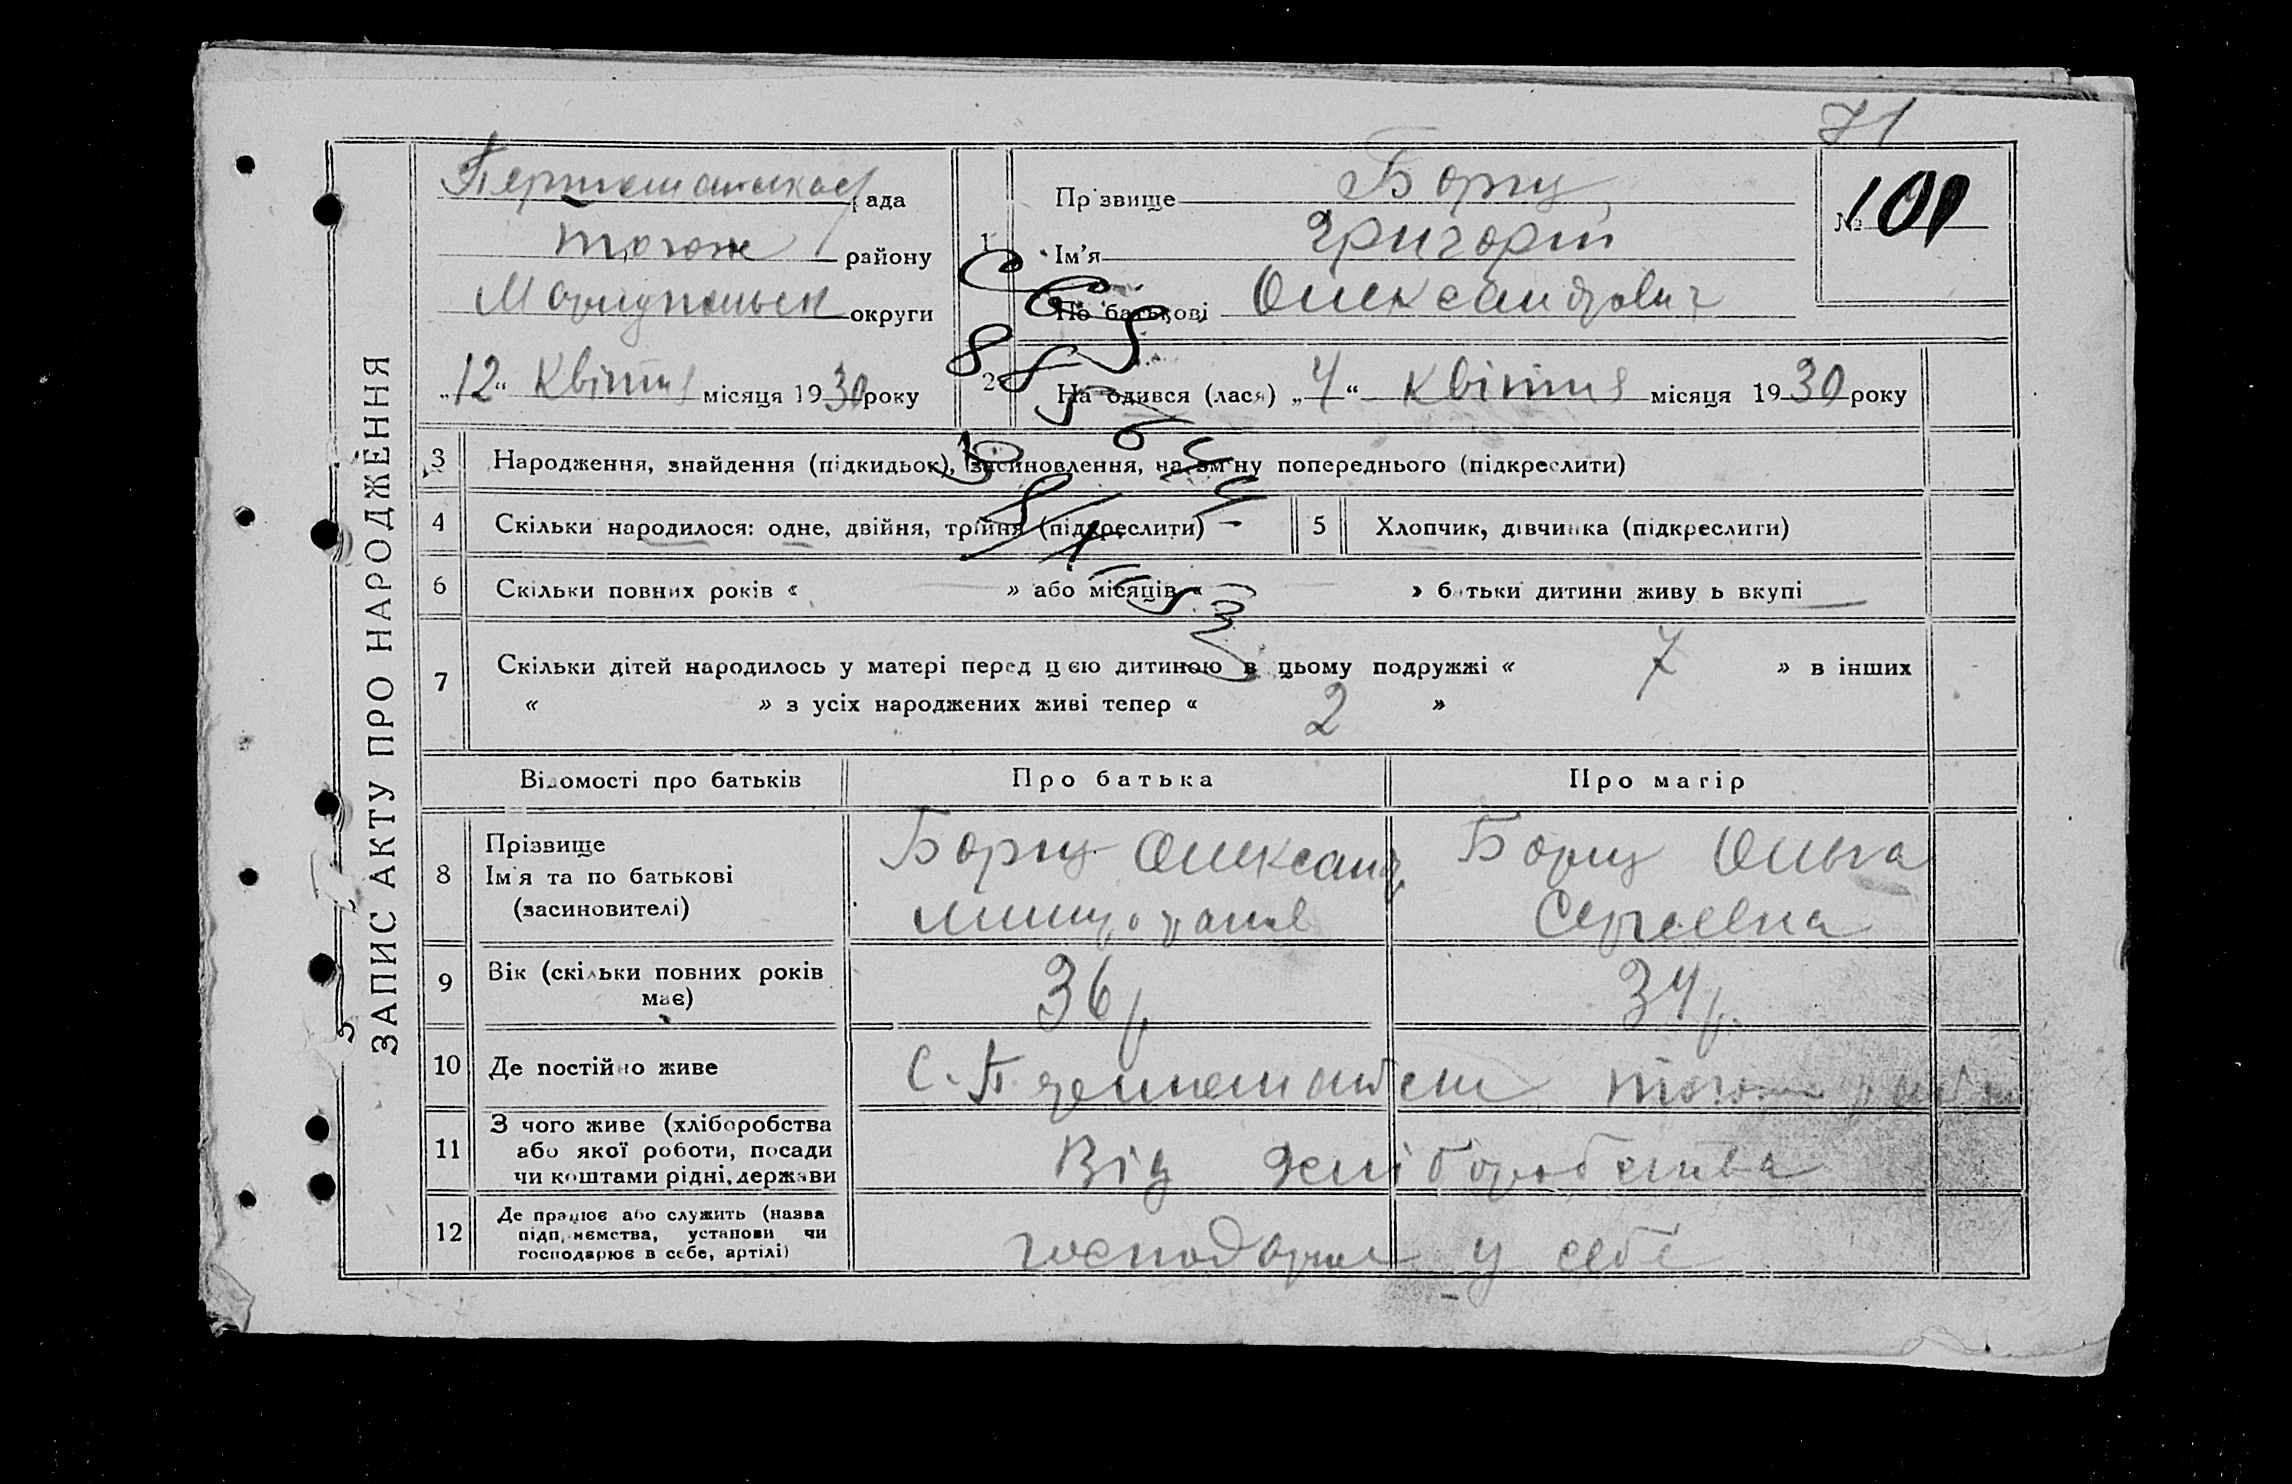 71
рада
тогож району
Маріупольск округи
„12“ Квітня місяця 1930 року
1
Прізвище Борщ
Ім'я Григорій
По батькові Олександрович
№ 101
2
Народився (лася) „4“ Квітня місяця 1930 року
ЗАПИС АКТУ ПРО НАРОДЖЕННЯ
3 Народження, знайдення (підкидьок), засиновлення, на зміну попереднього (підкреслити)
4 Скільки народилося: одне, двійня, трійня (підкреслити) 5 Хлопчик, дівчинка (підкреслити)
6 Скільки повних років « » або місяців « » батьки дитини живуть вкупі
7 Скільки дітей народилось у матері перед цєю дитиною в цьому подружжі « 7 » в інших
« » з усіх народжених живі тепер « 2 »
Відомості про батьків Про батька Про матір
8 Прізвище
Ім'я та по батькові
(засиновителі)
Борщ Олександ
Борщ Ольга
Сергеевна
9 Вік (скільки повних років
має)
36 р.
34 р.
10 Де постійно живе
С. тогож
11 З чого живе (хліборобства
або якої роботи, посади
чи коштами рідні, держави
Від хліборобства
12 Де працює або служить (назва
підприємства, установи чи
господарює в себе, артілі)
господарює у себе